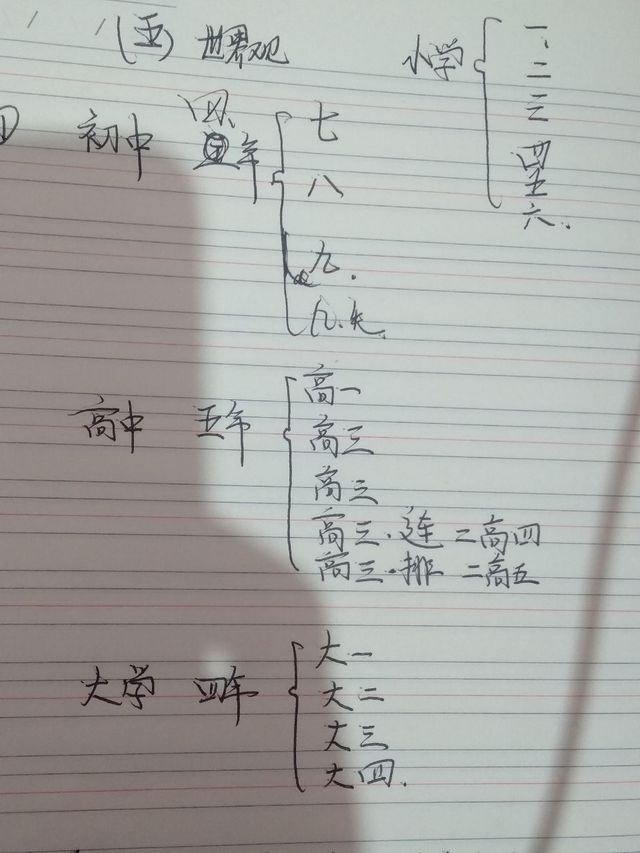 (五) 世界观
小学
一、
二
三
四
五
六.
初中 四年
七
八
九.
九.
高中 五年
高一
高三
高三
高三.连 二高四
高三.排 二高五
大学 四年
大一
大二
大三
大四.